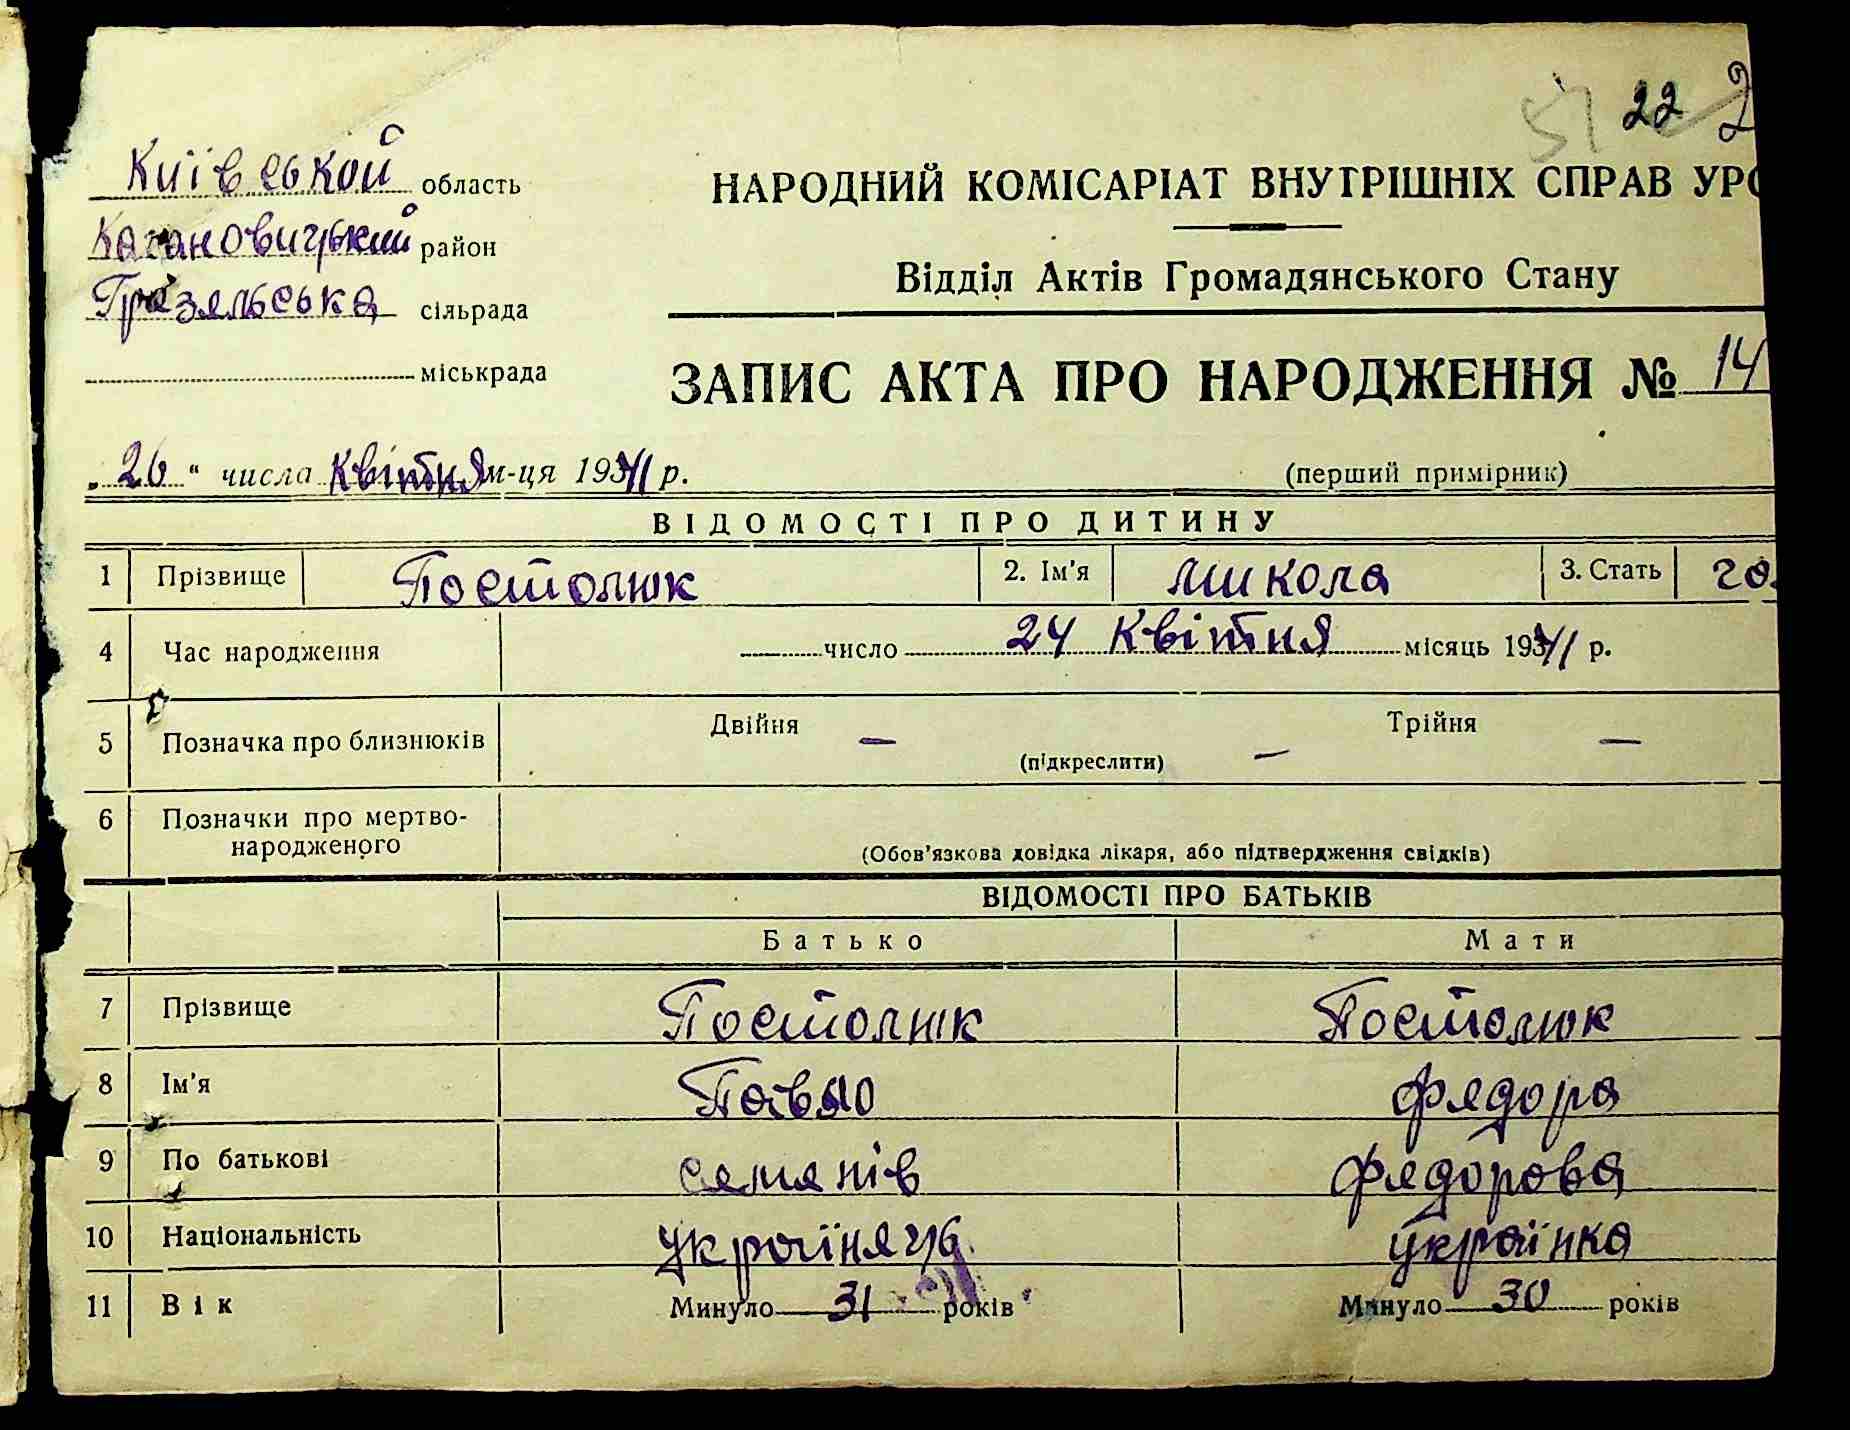 51 22 2
Київської область
НАРОДНИЙ КОМІСАРІАТ ВНУТРІШНІХ СПРАВ УРС
Кагановицький район
Відділ Актів Громадянського Стану
Грязяльська сільрада
міськрада
ЗАПИС АКТА ПРО НАРОДЖЕННЯ № 14
„26“ числа квітня м-ця 1941 р.
(перший примірник)
ВІДОМОСТІ ПРО ДИТИНУ
1 Прізвище Постолюк 2. Ім'я Микола 3. Стать
4 Час народження число 24 квітня місяць 1941 р.
5 Позначка про близнюків Двійня — (підкреслити) — Трійня —
6 Позначки про мертво-
народженого
(Обов'язкова довідка лікаря, або підтвердження свідків)
ВІДОМОСТІ ПРО БАТЬКІВ
Батько Мати
7 Прізвище Постолюк Постолюк
8 Ім'я Павло Фядора
9 По батькові Семянів Фядорова
10 Національність україняць українка
11 Вік Минуло 31 років Минуло 30 років